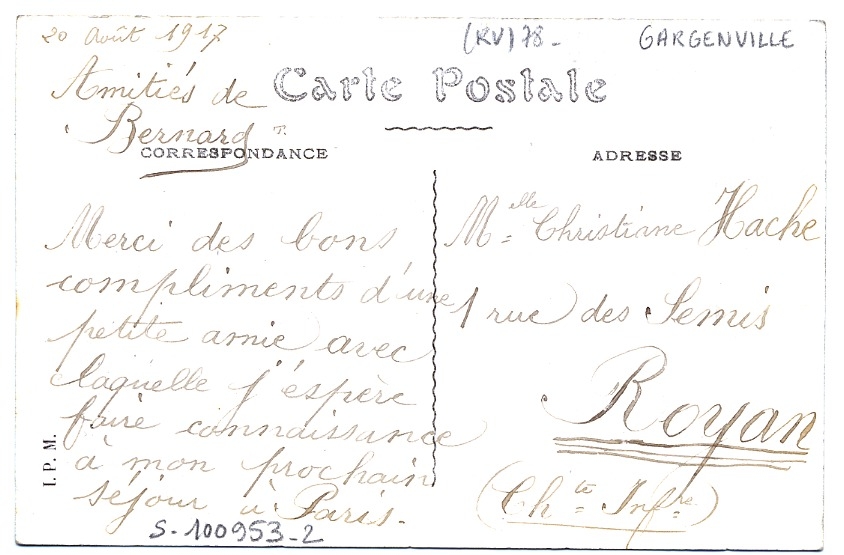 20 Août 1917
(RV) 78- GARGENVILLE
Carte Postale
Amitiés de
Bernard
CORRESPONDANCE
Merci des bons
compliments d'une
petite amie avec
laquelle j'éspère
faire connaissance
à mon prochain
séjour à Paris.
I. P. M.
S-100953-2
ADRESSE
M=elle Christiane Hache
1 rue des Semis
Royan
(Ch=te Inf=re)